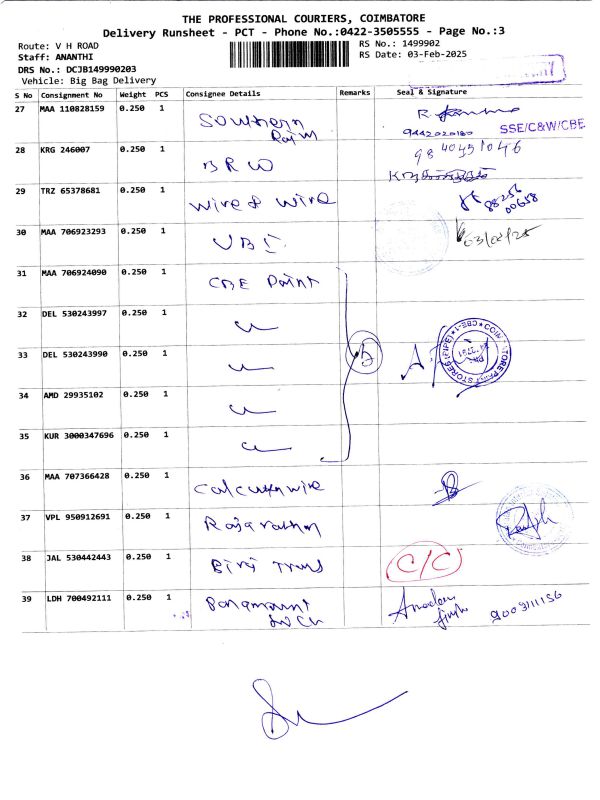 THE PROFESSIONAL COURIERS, COIMBATORE
Delivery Runsheet - PCT - Phone No.:0422-3505555 - Page No.:3
Route: V H ROAD
RS No.: 1499902
Staff: ANANTHI
RS Date: 03-Feb-2025
DRS No.: DCJB149990203
Vehicle: Big Bag Delivery
S No Consignment No Weight PCS Consignee Details Remarks Seal & Signature
27 MAA 110828159 0.250 1 Southern
SSE/C&W/CBE
28 KRG 246007 0.250 1 BRW
9840451046
29 TRZ 65378681 0.250 1 Wire & Wire
30 MAA 706923293 0.250 1 UBI
03/02/25
31 MAA 706924090 0.250 1 CBE Paint
32 DEL 530243997 0.250 1
33 DEL 530243990 0.250 1 5
34 AMD 29935102 0.250 1
35 KUR 3000347696 0.250 1
36 MAA 707366428 0.250 1 Calcutta wire
37 VPL 950912691 0.250 1 Rajarathan
38 JAL 530442443 0.250 1 C/C
39 LDH 700492111 0.250 1 Paramount
9003111156